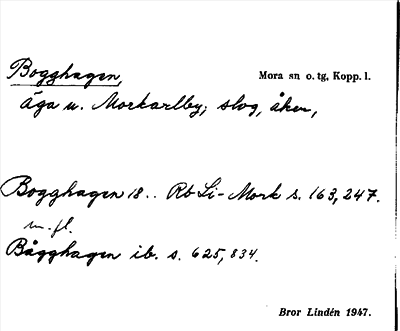 Bogghagen,
Mora sn o. tg, Kopp. l.
äga u. Morkarlby; slog, åker,
Bogghagen 18 .. Rb Li-Mork s. 163, 247.
m. fl.
Bågghagen ib. s. 625, 834.
Bror Lindén 1947.